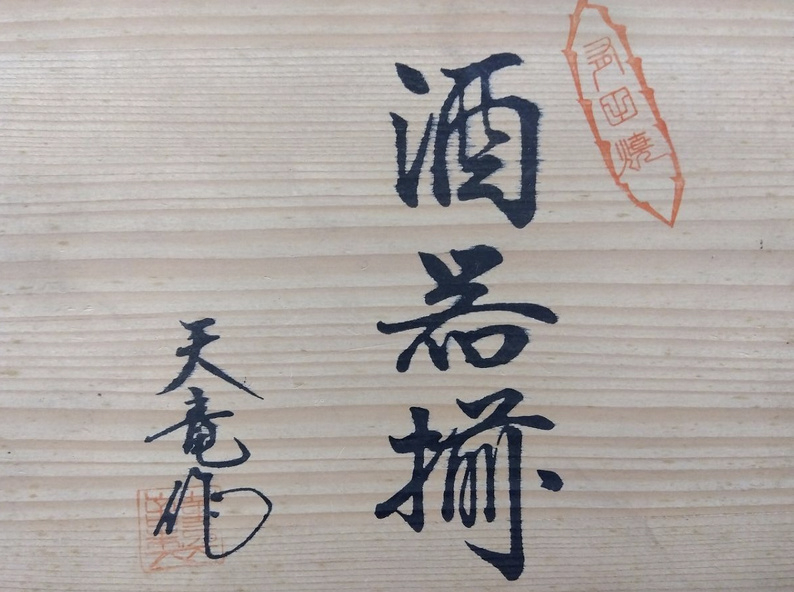 有田焼
酒器揃
天竜作